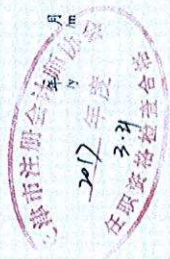 津市注册会计师协会
2017 年度
3.31
任职资格检查合格
年 月 日